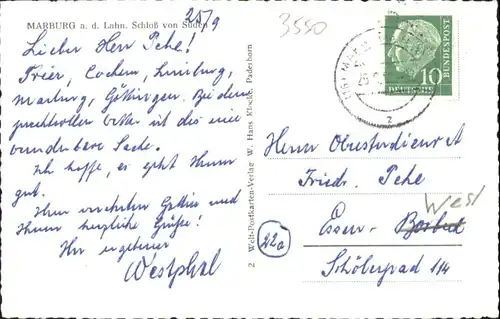 MARBURG a. d. Lahn. Schloß von Süden
25/9
3550
Lieber Herr Pehe!
Trier, Cochem, Limburg,
Marburg, Göttingen. Bei dem
prachtvollen Wetter ist das eine
wunderbare Sache.
Ich hoffe, es geht Ihnen
gut.
Ihrer verehrten Gattin und
Ihnen herzliche Grüße!
Ihr ergebener
Westphal
2 Welt-Postkarten-Verlag W. Hans Klocke, Paderborn
10
DEUTSCHE
BUNDESPOST
z
Herrn Oberstudienrat
Friedr. Pehe
22a
Essen- Borbeck West
Schölerpad 114